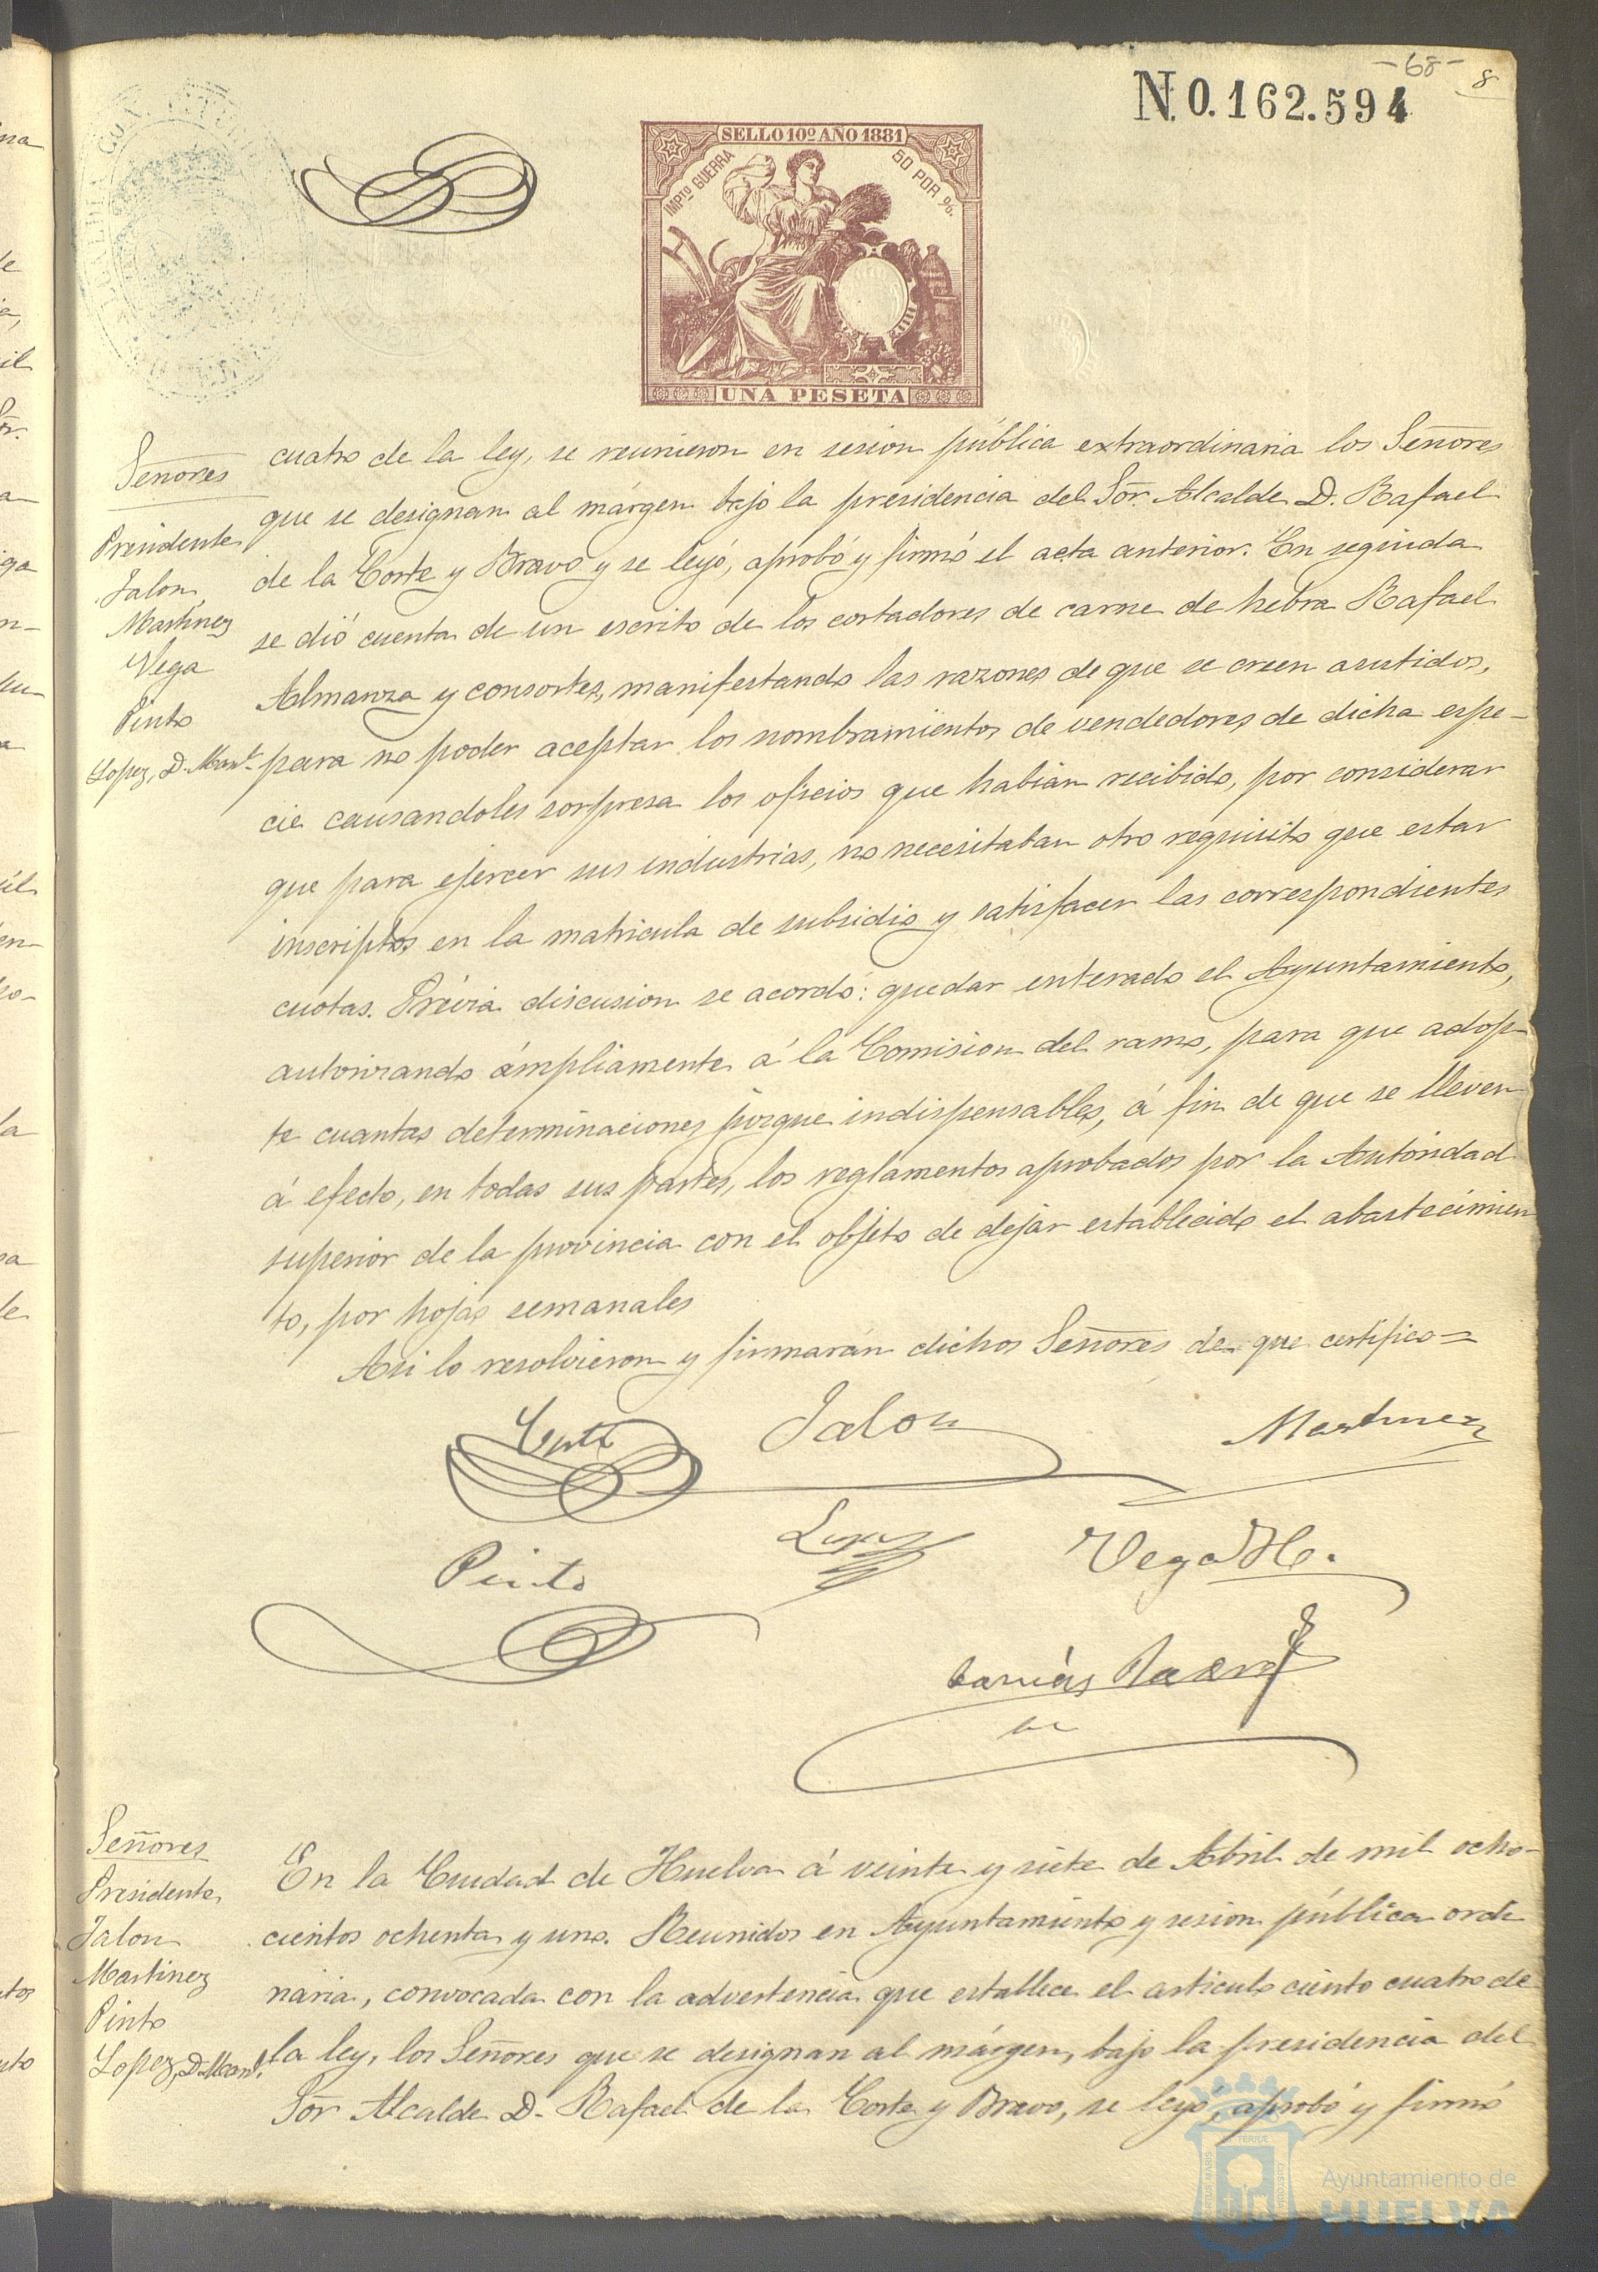 -68-
8
N.0.162.594
SELLO 10º AÑO 1881
IMPTO GUERRA
50 POR %.
UNA PESETA
Señores
Presidente
Jalon
Martinez
Vega
Pinto
Lopez, D. Manl.
cuatro de la ley, se reunieron en sesion pública extraordinaria los Señores
que se designan al márgen bajo la presidencia del Sor. Alcalde D. Rafael
de la Corte y Bravo y se leyó, aprobó y firmó el acta anterior. En seguida
se dió cuenta de un escrito de los cortadores de carne de hebra Rafael
Almanza y consortes, manifestando las razones de que se creen asistidos,
para no poder aceptar los nombramientos de vendedores de dicha espe-
cie causandoles sorpresa los oficios que habian recibido, por considerar
que para ejercer sus industrias, no necesitaban otro requisito que estar
inscriptos en la matricula de subsidio y satisfacer las correspondientes
cuotas. Prévia discusion se acordó: quedar enterado el Ayuntamiento,
autorizando ámpliamente á la Comision del ramo, para que adop-
te cuantas determinaciones juzgue indispensables, á fin de que se lleven
á efecto, en todas sus partes, los reglamentos aprobados por la Autoridad
superior de la provincia con el objeto de dejar establecido el abastecimien
to, por hojas semanales
Asi lo resolvieron y firmarán dichos Señores de que certifico=
Corte
Jalon
Martinez
Pinto
Lopez
Vega H.
Señores
Presidente
Jalon
Martinez
Pinto
Lopez, D. Manl.
En la Ciudad de Huelva á veinte y siete de Abril de mil ocho-
cientos ochenta y uno. Reunidos en Ayuntamiento y sesion pública ordi
naria, convocada con la advertencia que establece el articulo ciento cuatro de
la ley, los Señores que se designan al márgen, bajo la presidencia del
Sor Alcalde D. Rafael de la Corte y Bravo, se leyó, aprobó y firmó
Ayuntamiento de
HUELVA